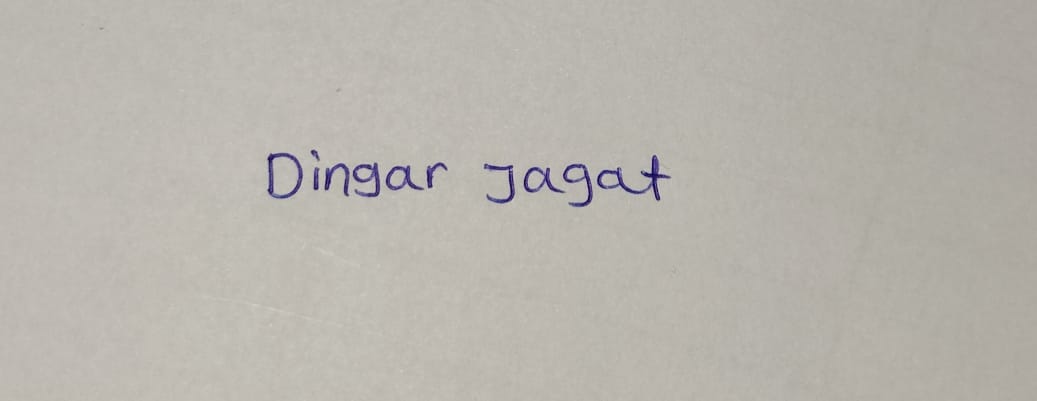 Dingar Jagat